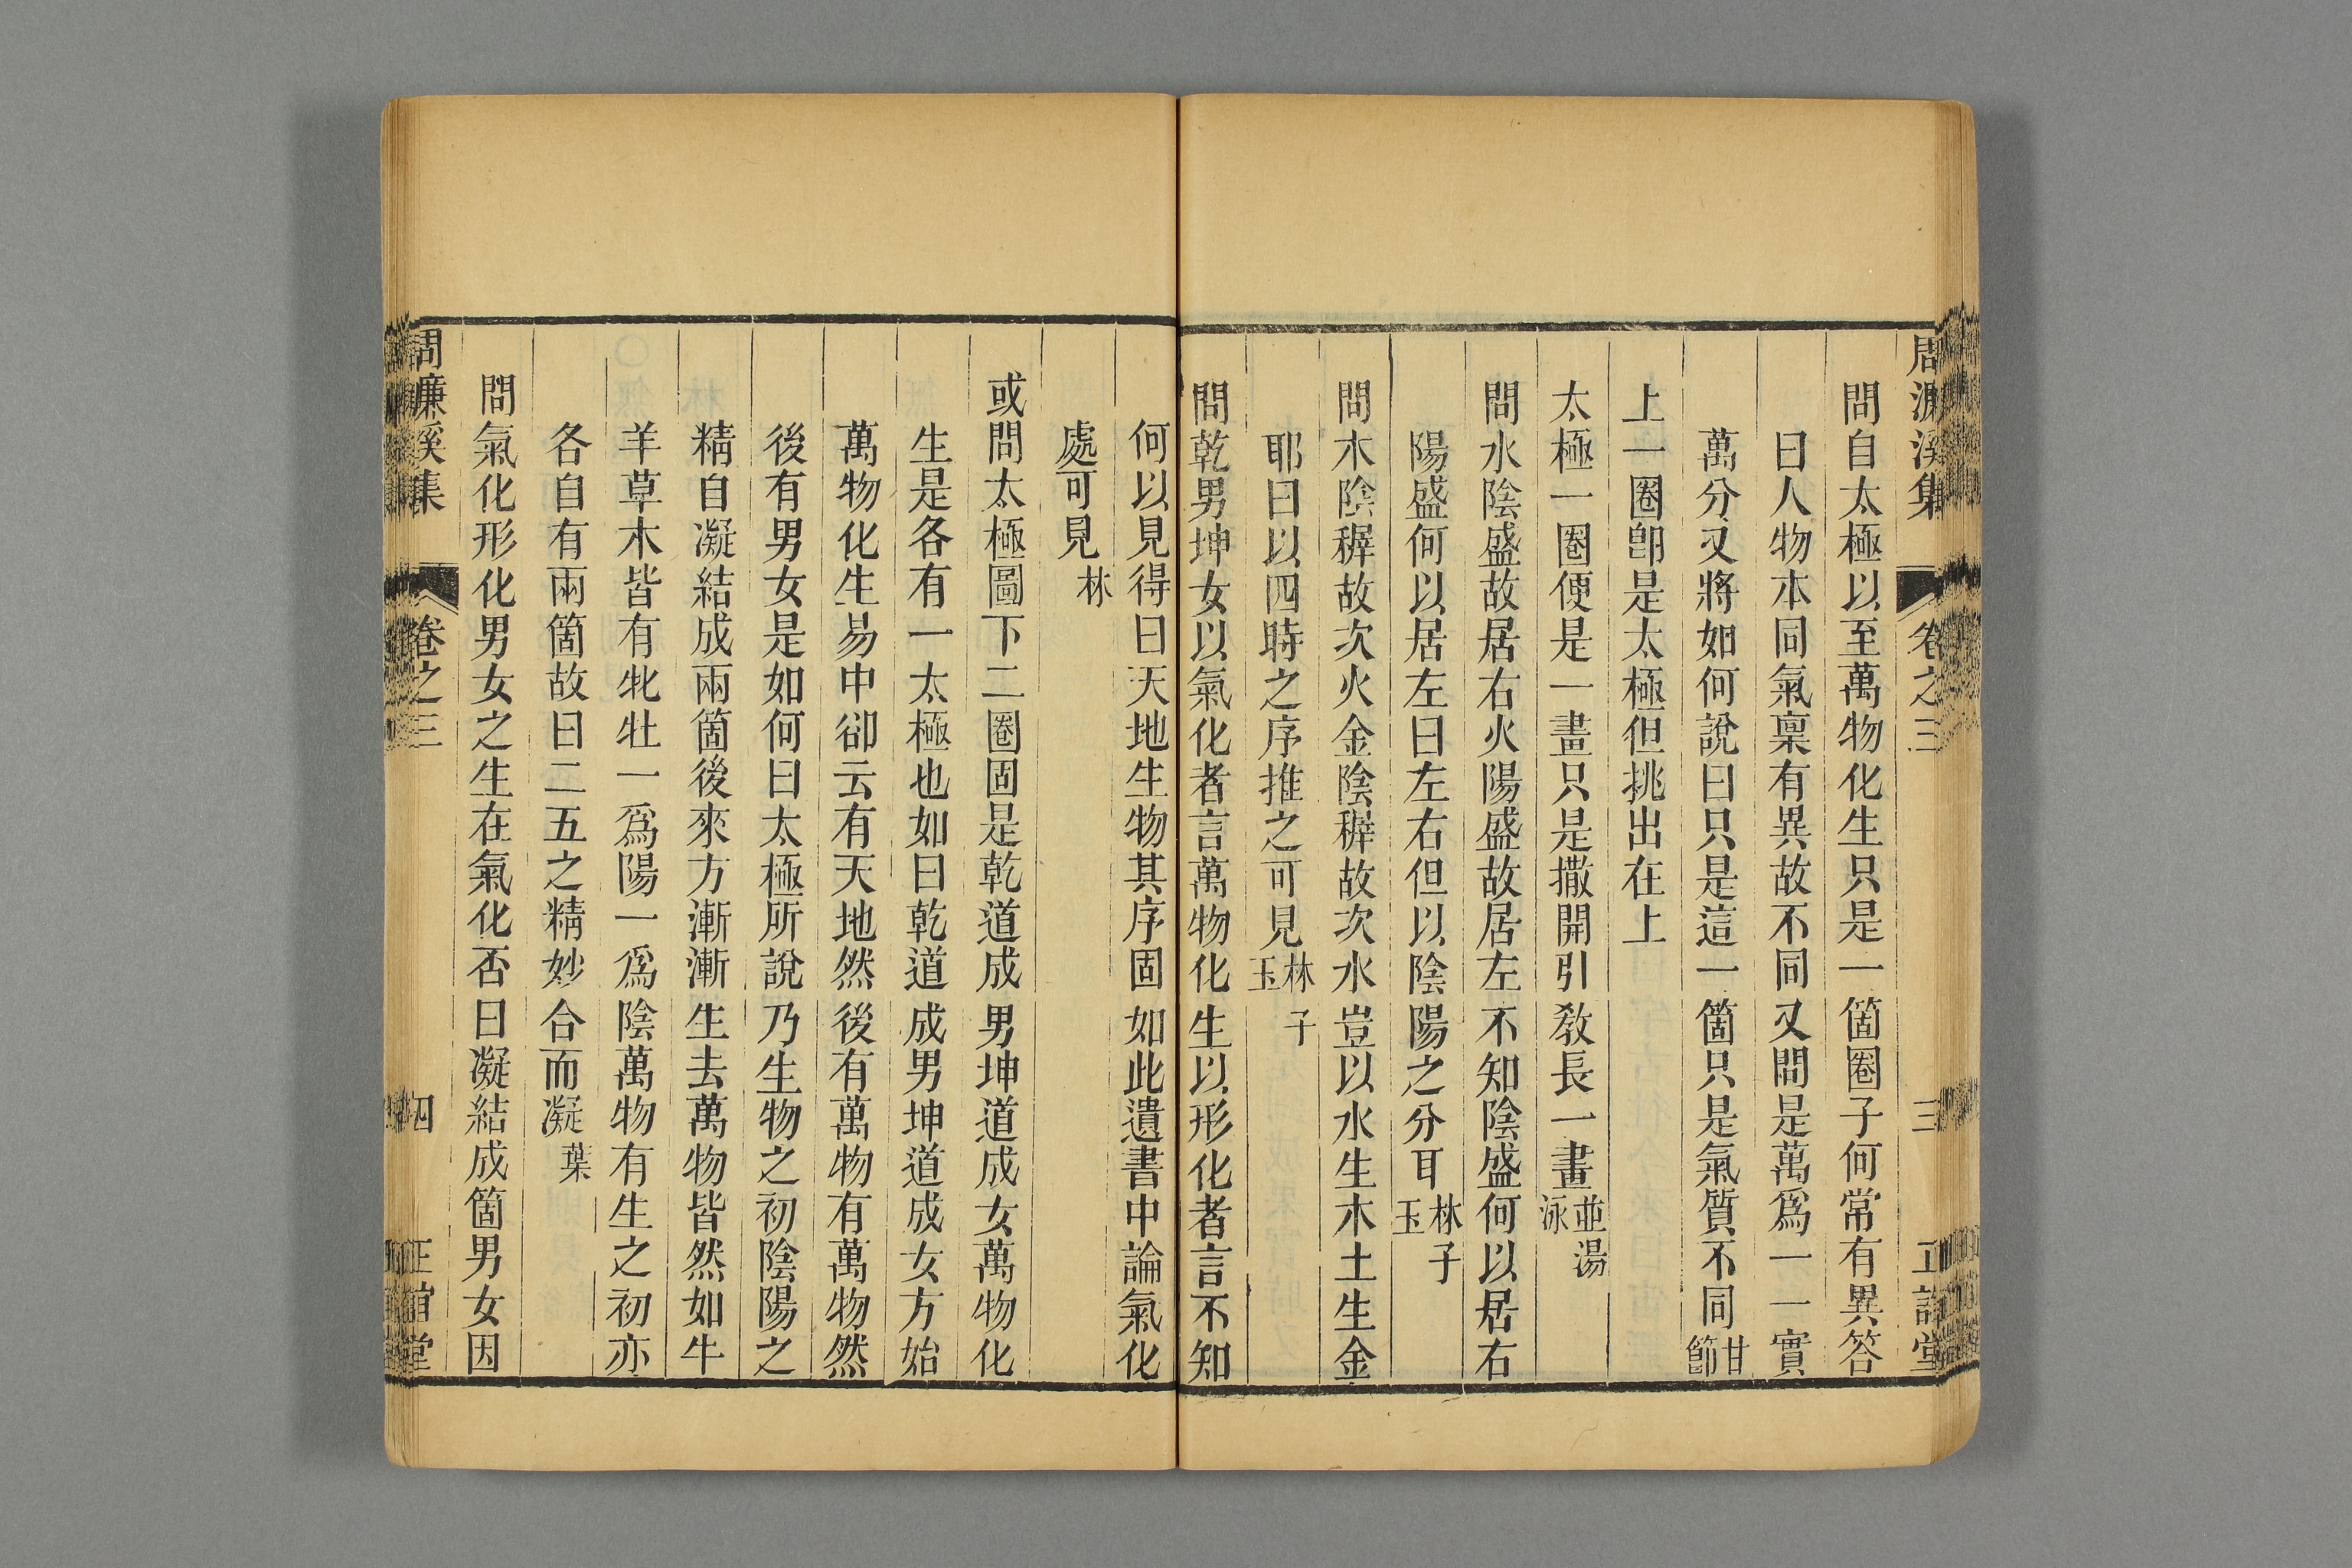 周濂溪集 卷之三 三 正誼堂
問自太極以至萬物化生只是一箇圈子何常有異答
曰人物本同氣稟有異故不同又問是萬爲一一實
萬分又將如何說曰只是這一箇只是氣質不同甘節
上一圈卽是太極但挑出在上
太極一圈便是一畫只是撒開引教長一畫並湯泳
問水陰盛故居右火陽盛故居左不知陰盛何以居右
陽盛何以居左曰左右但以陰陽之分耳林子玉
問木陰穉故次火金陰穉故次水豈以水生木土生金
耶曰以四時之序推之可見林子玉
問乾男坤女以氣化者言萬物化生以形化者言不知
何以見得曰天地生物其序固如此遺書中論氣化
處可見林
或問太極圖下二圈固是乾道成男坤道成女萬物化
生是各有一太極也如曰乾道成男坤道成女方始
萬物化生易中卻云有天地然後有萬物有萬物然
後有男女是如何曰太極所說乃生物之初陰陽之
精自凝結成兩箇後來方漸漸生去萬物皆然如牛
羊草木皆有牝牡一爲陽一爲陰萬物有生之初亦
各自有兩箇故曰二五之精妙合而凝葉
問氣化形化男女之生在氣化否曰凝結成箇男女因
周濂溪集 卷之三 四 正誼堂